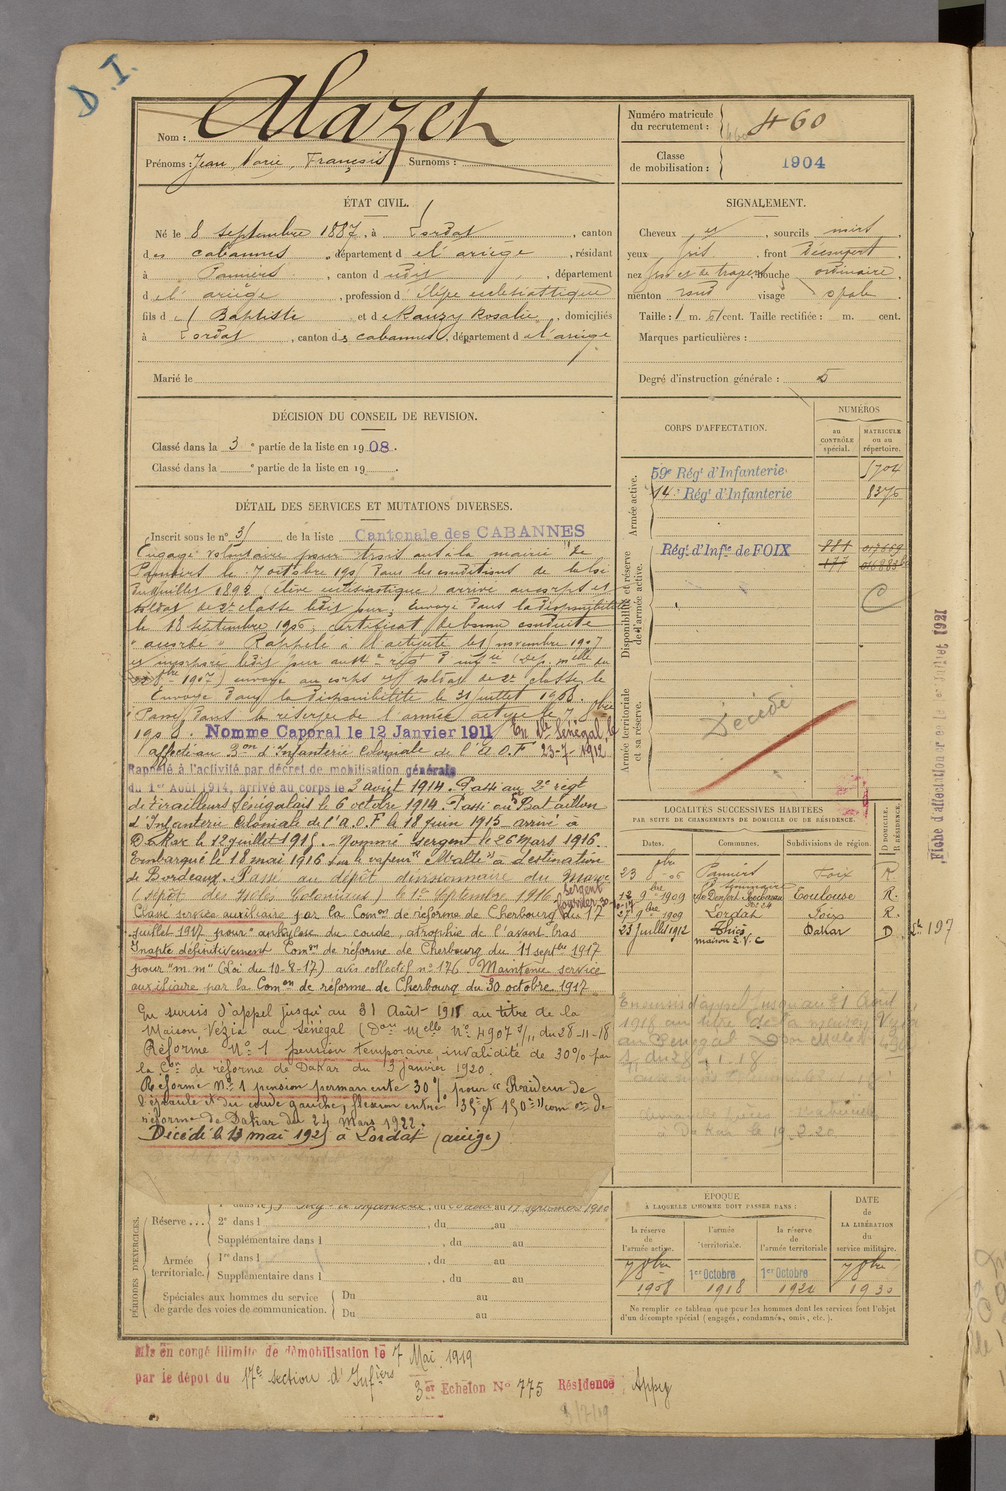 D. I.
Nom : Alazet
Prénoms : Jean, Marie, François Surnoms :
Numéro matricule du recrutement : 460
Classe de mobilisation : 1904
ÉTAT CIVIL.
Né le 8 septembre 1887, à Lordat, canton
des cabannes, département de l'ariège, résidant
à Pamiers, canton dudit, département
de l'ariège, profession d'élève ecclésiastique
fils de Baptiste et de Rauzy Rosalie, domiciliés
à Lordat, canton des cabannes, département de l'ariège
Marié le
SIGNALEMENT.
Cheveux et, sourcils noirs
yeux gris, front Découvert
nez gros et de travers bouche ordinaire
menton rond visage ovale
Taille : 1 m. 61 cent. Taille rectifiée : m. cent.
Marques particulières :
Degré d'instruction générale : 5
DÉCISION DU CONSEIL DE REVISION.
Classé dans la 3e partie de la liste en 1908.
Classé dans la e partie de la liste en 19 .
CORPS D'AFFECTATION.
NUMÉROS
au CONTRÔLE spécial.
MATRICULE ou au répertoire.
Armée active.
59e Régt d'Infanterie. 5704
14e Régt d'Infanterie 8376
Disponibilité et réserve de l'armée active.
Régt d'Infie de FOIX
C
Armée territoriale et sa réserve.
Décédé
DÉTAIL DES SERVICES ET MUTATIONS DIVERSES.
Inscrit sous le no 31 de la liste Cantonale des CABANNES
Engagé volontaire pour trois ans à la mairie de
Pamiers le 7 octobre 1905 dans les conditions de la loi
du juillet 1892 (élève ecclésiastique) arrivé au corps et
soldat de 2e classe ledit jour. Envoyé dans la disponibilité
le 18 septembre 1906, certificat de bonne conduite
"accordé" Rappelé à l'activité le novembre 1907
et incorporé ledit jour au 14e régt d'infie
1907) envoyé au corps et soldat de 2e classe le
Envoyé dans la disponibilité le 31 juillet 1908.
Passé dans la réserve de l'armée active le 7 8bre
1908. Nommé Caporal le 12 Janvier 1911 Sénégal le
affecté au Bon d'Infanterie Coloniale de l'A.O.F 23-7-1912
Rappelé à l'activité par décret de mobilisation générale
du 1er Août 1914, arrivé au corps le 3 août 1914. Passé au 2e régt
de tirailleurs Sénégalais le 6 octobre 1914. Passé au Bataillon
d'Infanterie Coloniale de l'A.O.F le 18 juin 1915 arrivé à
Dakar le 12 juillet 1915. Nommé Sergent le 26 Mars 1916.
Embarqué le 18 mai 1916 sur le vapeur "Malte" à destination
de Bordeaux. Passé au dépôt divisionnaire du
(dépôt des Isolés Coloniaux) le 1er Septembre 1916. Sergent fourrier
Classé service auxiliaire par la Comon de réforme de Cherbourg du 17
juillet 1917 pour "ankylose du coude, atrophie de l'avant bras
Inapte définitivement Comon de réforme de Cherbourg du 11 septbre 1917
pour "m.m" (Loi du 10-8-17) avis collectif no 176. Maintenu service
auxiliaire par la Comon de réforme de Cherbourg du 30 octobre 1917.
En sursis d'appel jusqu'au 31 Août 1918 au titre de la
Maison Vézia au Sénégal (Don Melle No 4907 du 28-11-18
Réformé No 1 pension temporaire, invalidité de 30% par
la Con de réforme de Dakar du 13 janvier 1920.
Réformé No 1 pension permanente 30% pour "Raideur de
l'épaule et du coude gauche, flexion entre 135° et 150°" comon de
réforme de Dakar du 24 Mars 1922.
Décédé le 13 mai 1925 à Lordat (ariège)
LOCALITÉS SUCCESSIVES HABITÉES
PAR SUITE DE CHANGEMENTS DE DOMICILE OU DE RÉSIDENCE.
Dates. Communes. Subdivisions de région. D DOMICILE. R RÉSIDENCE.
23 8bre 06 Pamiers Foix R.
12 9bre 1909 Toulouse R.
27 9bre 1909 Lordat Foix R.
23 Juillet 1912 Thiès maison L.V.C Dakar D
En sursis d'appel jusqu'au 31 Août
1918 au titre de la maison Vézia
au Sénégal
Fiche d'affectation créée le 1er Juillet 1921
PÉRIODES D'EXERCICES.
Réserve ...
1e dans le Régt d'Infanterie, du au 17 septembre 1910
2e dans l , du au
Supplémentaire dans l , du au
Armée territoriale.
1re dans l , du au
Supplémentaire dans l , du au
Spéciales aux hommes du service de garde des voies de communication.
Du au
Du au
EPOQUE
À LAQUELLE L'HOMME DOIT PASSER DANS :
la réserve de l'armée active. l'armée territoriale. la réserve de l'armée territoriale
DATE DE LA LIBÉRATION du service militaire.
7 8bre 1908
1er Octobre 1918
1er Octobre 1924
7 8bre 1930
Ne remplir ce tableau que pour les hommes dont les services font l'objet
d'un décompte spécial (engagés, condamnés, omis, etc.).
Mis en congé illimité de démobilisation le 7 Mai 1919
par le dépôt du 17e section d'Infiers
3er Echelon No 775 Résidence Appy